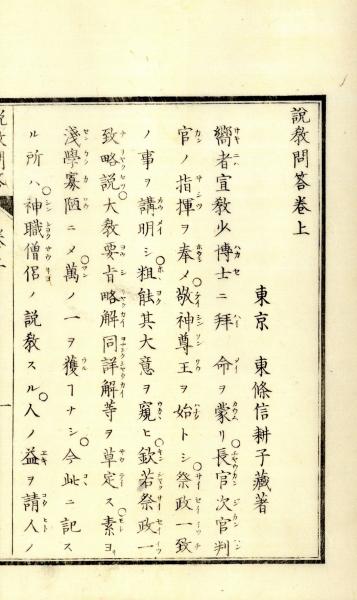 説教問答巻上
東京 東條信耕子藏著
嚮者宣教少博士ニ拜命ヲ蒙リ長官次官判
官ノ指揮ヲ奉〆敬神尊王ヲ始トシ祭政一致
ノ事ヲ講明シ粗能其大意ヲ窺ヒ欽若祭政一
致略説大教要旨略解同詳解等ヲ草定ス素ヨリ
淺學寡陋ニ〆萬ノ一ヲ獲ヿナシ今此ニ記ス
ル所ハ神職僧侶ノ説教スル人ノ益ヲ請人ノ